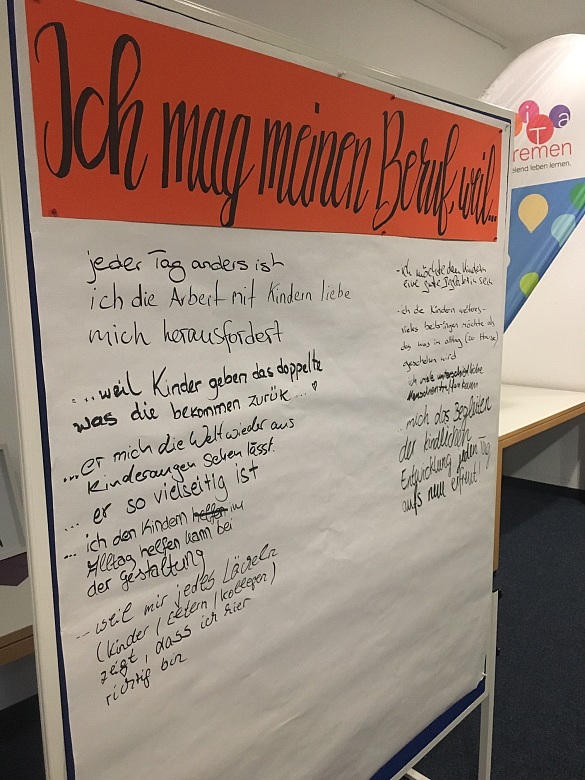 Ich mag meinen Beruf, weil...
jeder Tag anders ist
ich die Arbeit mit Kindern liebe
mich herausfordert
...weil Kinder geben das doppelte
was die bekommen zurük...
...er mich die Welt wieder aus
Kinderaugen sehen lässt.
... er so vielseitig ist
... ich den Kindern helfen im
Alltag helfen kann bei
der Gestaltung
...weil mir jedes Lächeln
(Kinder / Eltern / Kollegen)
zeigt, dass ich hier
richtig bin
- ich möchte den Kindern
eine gute Begleiterin sein
- ich die Kindern
vieles beibringen möchte als
das was im alltag (zu Hause)
geschehen wird
ich
Menschen
..mich das Begleiten
der kindlichen
Entwicklung jeden Tag
aufs neue erfreut!
iTa
remen
elend leben lernen.